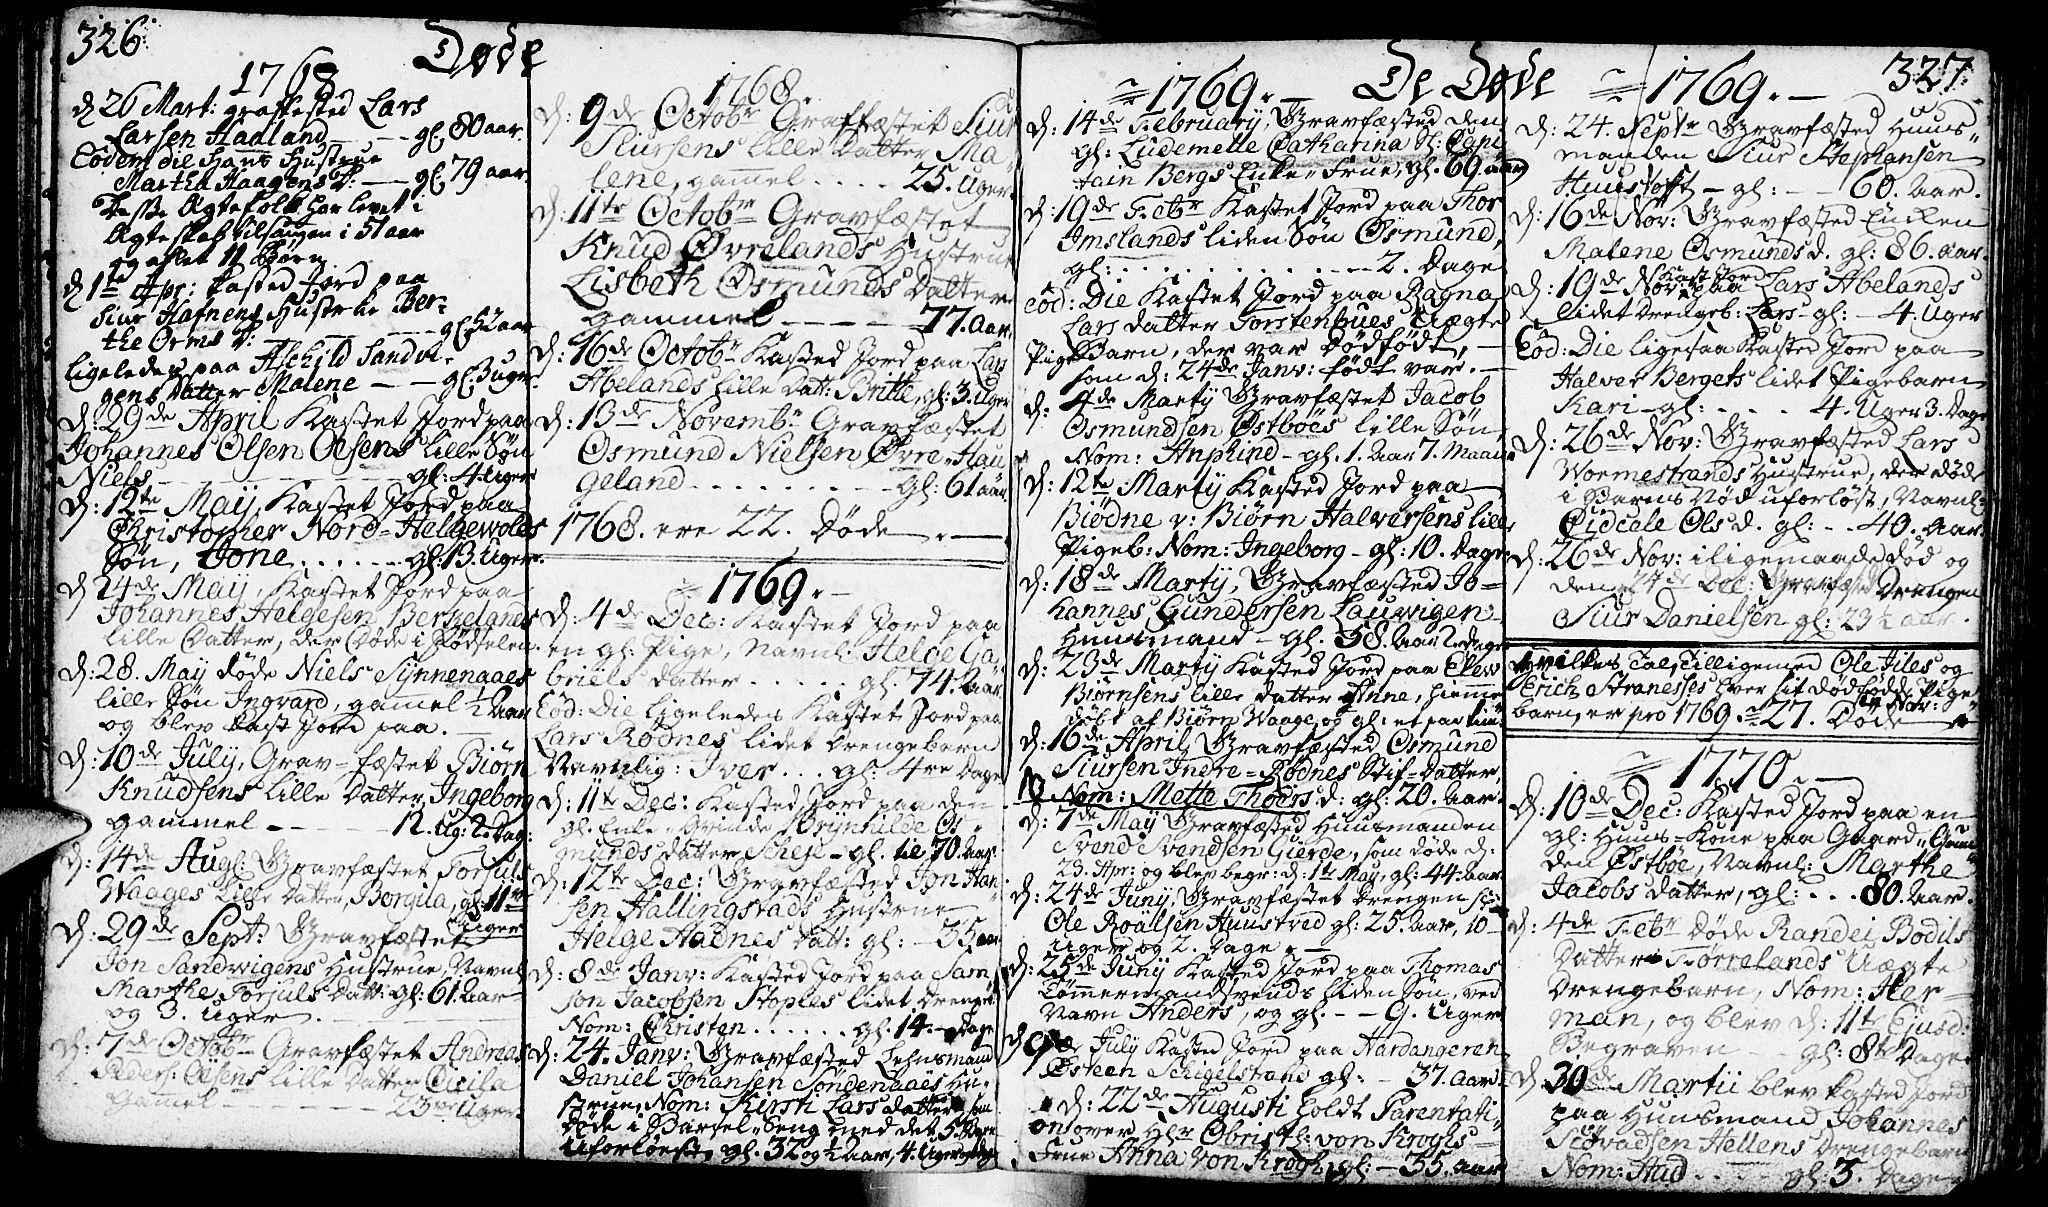 326.
Døde
1768
d 26 Mart: grafæsted Lars
Larsen Hadland — — gl. 80 aar.
Eodem die Hans Hustrue
Martha Haagens D: — gl. 79 aar.
Desse Ægtefolk har levet i
Ægteskab tilsamen i 51 aar
og aflet 11 Børn
d 1te Apr: kasted Jord paa
Siur Hafnens Hustrue Ber-
the Orms D: — — gl. aar
ligeledes paa Aschild Sandvi-
gens Datter Malene — — gl. 3 uger.
d: 29de April Kastet Jord paa
Johannes Olsen Oesens lille Søn
Niels — — — gl: 4. Uger
d: 12te Maij, Kastet Jord paa
Christopher Nord=Helgewolds
Søn, Tone . . . . . . gl: 13. Uger.
d 24de Maij, Kastet Jord paa
Johannes Helgesen Berkelands
lille Datter, der døde i Fødselen.
d: 28. Maij døde Niels Synnenaaes
lille Søn Ingvard, gamel ½ Aar
og blev kast Jord paa.
d: 10de July, Grav-fæstet Biørn
Knudsens lille Datter Ingeborg
gammel — — — 12. Ug: 2. Dag:
d: 14de Aug: Gravfæstet Torjuls
Waages lille Datter, Borgila, gl. 11te
Uger
d: 29de Sept: Gravfæstet
Jon Sandwigens Hustrue, Navnl:
Marthe Torjuls Datt: gl: 61. Aar
og 3. Uger.
d: 7de Octobr Gravfæstet Andreas
Peders: Olsens lille Datter Cicila
Gamel — — — 23 Uger.
1768
d: 9de Octobr Graffæstet Siur
Siursens lille Datter Ma-
lene, gamel . . . . 25. Uger
d: 11te Octobr Gravfæstet
Knud Øvrelands Hustrue
Lisbeth Osmunds Datter
gammel — — — 77. Aar.
d: 16de Octobr Kasted Jord paa Lars
Abelands lille Datt: Britte, gl: 3. Uger
d: 13de Novembr Gravfæstet
Osmund Nielsen Øvre-Hau-
geland . . . . . . . . gl: 61 aar
1768. ere 22. Døde
1769.
d: 4de Dec: Kastet Jord paa
en gl: Pige, Navnl: Helge Ga-
briels datter . . . . . gl: 74. Aar
Eod: Die ligeledes Kastet Jord paa
Lars Rødnes lidet Drengebarn
Navnlig: Iver . . . gl: 4re Dage
d: 11te Dec: Kasted Jord paa den
gl: Enke-Qvinde Brynhilde Os-
munds datter Scheje — gl. til 70. Aar.
d: 12te Dec: Gravfæsted Jon Han-
sen Hallingstads Hustrue
Helge Hadnes Datt: gl: — 35 aar
d: 8de Janv: Kasted Jord paa Sam-
son Jacobsen Stoples lidet Drengeb:
Nom: Christen . . . . . . gl: 14. Dage
d: 24. Janv: Gravfæsted Lehnsmand
Daniel Johansen Søndenaaes Hu-
strue, Nom: Kirsti Lars datter som
døde i Barsel-Seng med det 5. Barn
uforløest, gl. 32 og ½ Aar, 4. Uger
De Døde
1769.
d: 14de February, Gravfæsted den
gl: Ludemelle Catharina Sl: Capi-
tain Bergs Enke-Frue, gl. 69. aar
d: 19de Febr Kastet Jord paa Thor
Imslands liden Søn Osmund,
gl: . . . . . . . . . . — 2. Dage
eod: Die Kastet Jord paa Ragna
Lars datter Torstenbues Uægte
Pige Barn, der var Dødfødt, —
som d: 24de Janv: født var. —
d: 4de Martij Gravfæstet Jacob
Osmundsen Østbøes lille Søn,
Nom: Anphind — gl. 1. Aar 7. Maan:
d: 12te Martij Kasted Jord paa
Biødne v: Biørn Halversens lille
Pigeb: Nom: Ingeborg — gl: 10. Dage
d: 18de Martij, Gravfæsted Jo-
hannes Gundersen Lauwigen
Huusmand — gl. 38. Aar 2. dage
d: 23de Martij Kasted Jord paa Elew
Biørnsens lille datter Anne, hiemme
døbt af Biørn Waage, og gl: et par tim:
d: 16de April, Gravfæsted Osmund
Siursen Indre=Rødnes Stif=Datter,
Nom: Mette Thoers d: gl: 20. Aar.
d: 7de Maij Gravfæsted Huusmanden
Svend Svendsen Gierde, som døde d:
23. Apr: og blev begr: d: 1te Maij, gl: 44. Aar
d: 24de Junij, Gravfæstet Drengen
Ole Roalsen Huustved gl: 25. Aar, 10
uger og 2. Dage. —
d: 25de Junij Kasted Jord paa Thomas
Tømmermandsvends liden Søn, ved
Navn Anders, og gl: — — 9. Uger
d 9de July Kasted Jord paa Hardangeren
Østeen Schigelstand gl: — 37. Aar.
d: 22de Augusti holdt Parentati-
on over Hr Obrist: von Kroghs
Frue Anna von Krogh, gl: — 35. aar
327.
1769.
d: 24. Septr Gravfæsted Huus-
manden Siur Stephansen
Huustoft — gl: — — 60. Aar.
d: 16de Nov: Gravfæsted Encken
Malene Osmunds d. gl: 86. aar.
d: 19de Nov: Kast Jord paa Lars Abelands
lidet Drengeb: Lars — gl: — 4. Uger
Eod: Die ligesaa Kasted Jord paa
Halver Bergets lidet Pigebarn
Kari — gl: . . . . 4. Uger 3. Dage
d: 26de Nov: Gravfæsted Lars
Wormestrands Hustrue, der døde
i Barns Nød uforløst, Navnl:
Cidcele Ols d. gl: . . 40. Aar.
d: 26de Nov: iligemaade død og
den 27de Dec: Gravfæst Drengen
Siur Danielsen gl: 23½ aar.
Hvilkes Tal, Tilligemed Ole Jiles og
Erich Stranesses hver sit dødfødde Pige-
barn, er pro 1769. = 27. Døde
1770.
d: 10de Dec: Kasted Jord paa en
gl: Huus=Kone paa Gaarden
Østbøe, Navnl: Marthe
Jacobs datter, gl: . . . 80. Aar.
d: 4de Febr døde Randei Bodils
Datter Tørrelands Uægte
Drengebarn, Nom: Her-
man, og blev d: 11te Ejusd:
Begraven — — gl: 8te Dage
d: 30de Martii blev kasted Jord
paa Huusmand Johannes
Hellens Drengebarn
Nom: Stad . . . . gl: 3. Dage